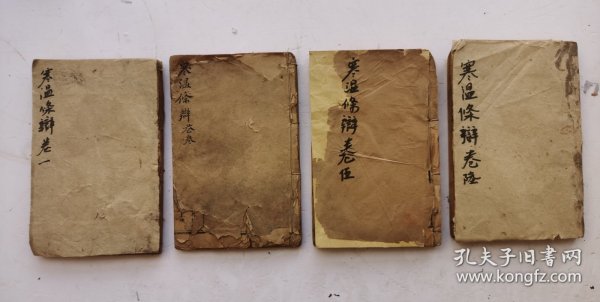 寒温條辯卷一
寒温條辯卷叁
寒温條辯卷伍
寒温條辯卷陸
孔夫子旧书网
www.kongfz.com